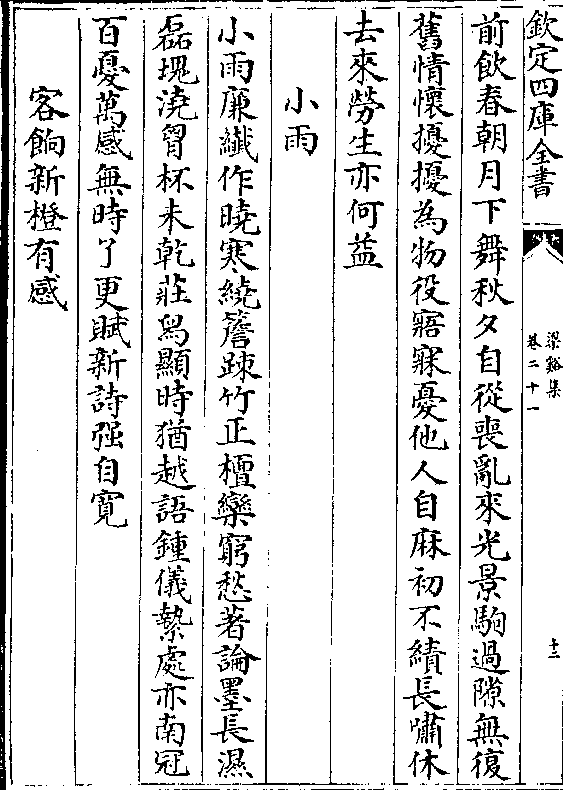 欽定四庫全書
梁谿集
卷二十一
十二
前飲春朝月下舞秋夕自從喪亂來光景駒過隙無復
舊情懷擾擾為物役寤寐憂他人自麻初不績長嘯休
去來勞生亦何益
小雨
小雨廉纖作曉寒繞簷踈竹正檀欒窮愁著論墨長濕
磊塊澆胷杯未乾莊舄顯時猶越語鍾儀縶處亦南冠
百憂萬感無時了更賦新詩强自寛
客餉新橙有感